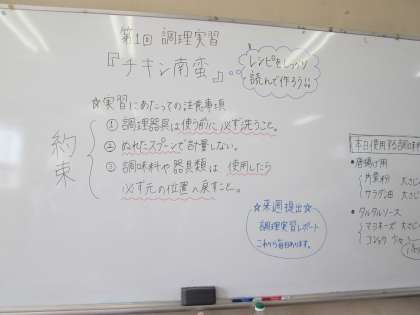 第1回 調理実習
『チキン南蛮』
レシピをしっかり
読んで作ろう!!
☆実習にあたっての注意事項
約束
① 調理器具は使う前に必ず洗うこと。
② ぬれたスプーンで計量しない。
③ 調味料や器具類は 使用したら
必ず元の位置へ戻すこと。
☆来週提出☆
調理実習レポート
これから毎回あります。
本日使用する調味料
・唐揚げ用
片栗粉 大さじ
サラダ油 大さじ
・タルタルソース
マヨネーズ 大さじ